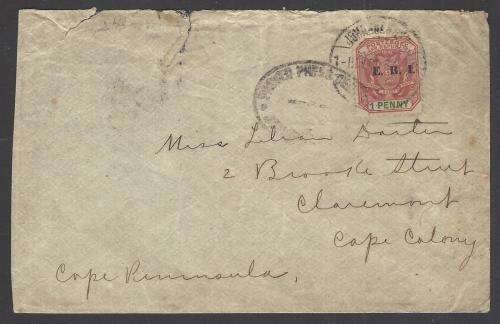 E. R. I.
1 PENNY
Miss Lilian Darter
2 Brooke Street
Claremont
Cape Colony
Cape Peninsula,